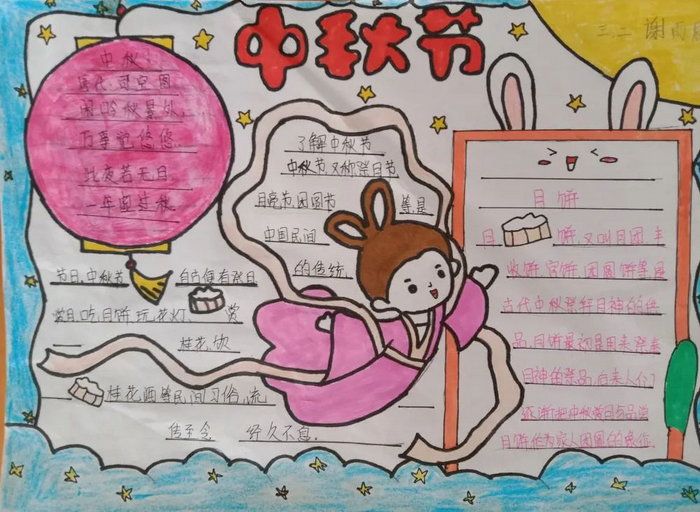 中秋节
三二 谢雨
中秋
唐代 司空图
闲吟秋景外,
万事觉悠悠.
此夜若无月,
一年虚过秋.
了解中秋节
中秋节又称祭日节
月亮节团圆节 等,是
中国民间
的传统
节日,中秋节 自古便有祭月
赏月,吃月饼,玩花灯、 赏
桂花,饮
桂花酒等民间习俗,流
传至今 经久不息.
月饼
月 饼,又叫月团 丰
收饼,宫饼 团圆饼等,是
古代中秋祭拜月神的供
品,月饼最初是用来祭奉
月神的祭品,后来人们
逐渐把中秋赏月与品尝
月饼作为家人团圆的象征.